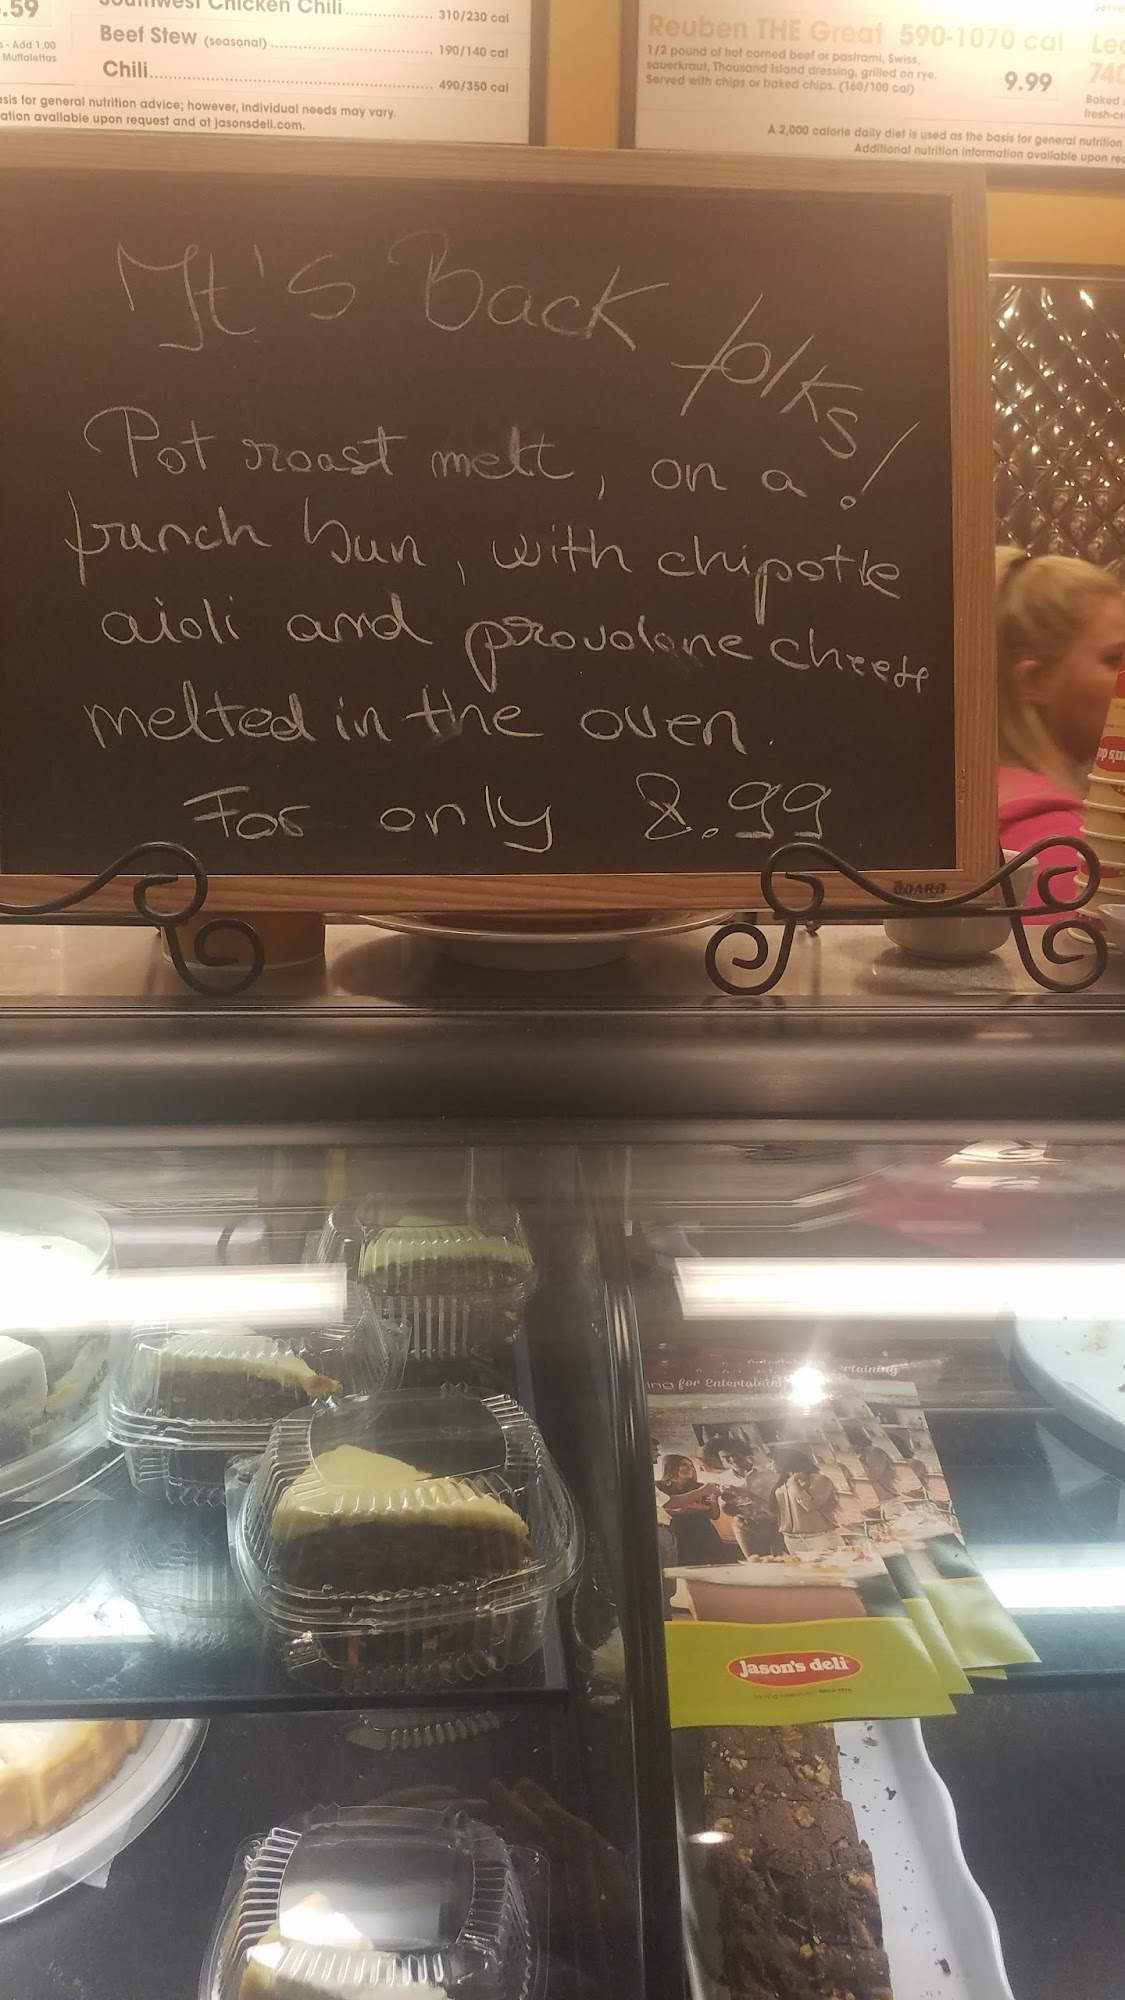 .59
s - Add 1.00
Muffalettas
Southwest Chicken Chili 310/230 cal
Beef Stew (seasonal) 190/140 cal
Chili 490/350 cal
sis for general nutrition advice; however, individual needs may vary.
ation available upon request and at jasonsdeli.com.
Reuben THE Great 590-1070 cal
1/2 pound of hot corned beef or pastrami, Swiss,
sauerkraut, Thousand Island dressing, grilled on rye.
Served with chips or baked chips. (160/100 cal)
9.99
Serve
Leo
740
Baked
fresh-cr
A 2,000 calorie daily diet is used as the basis for general nutrition
Additional nutrition information available upon req
It's Back folks!
Pot roast melt, on a
french bun, with chipotle
aioli and provolone cheese
melted in the oven.
For only 8.99
BOARD
rtaining
ing for Entertaining
Jason's deli